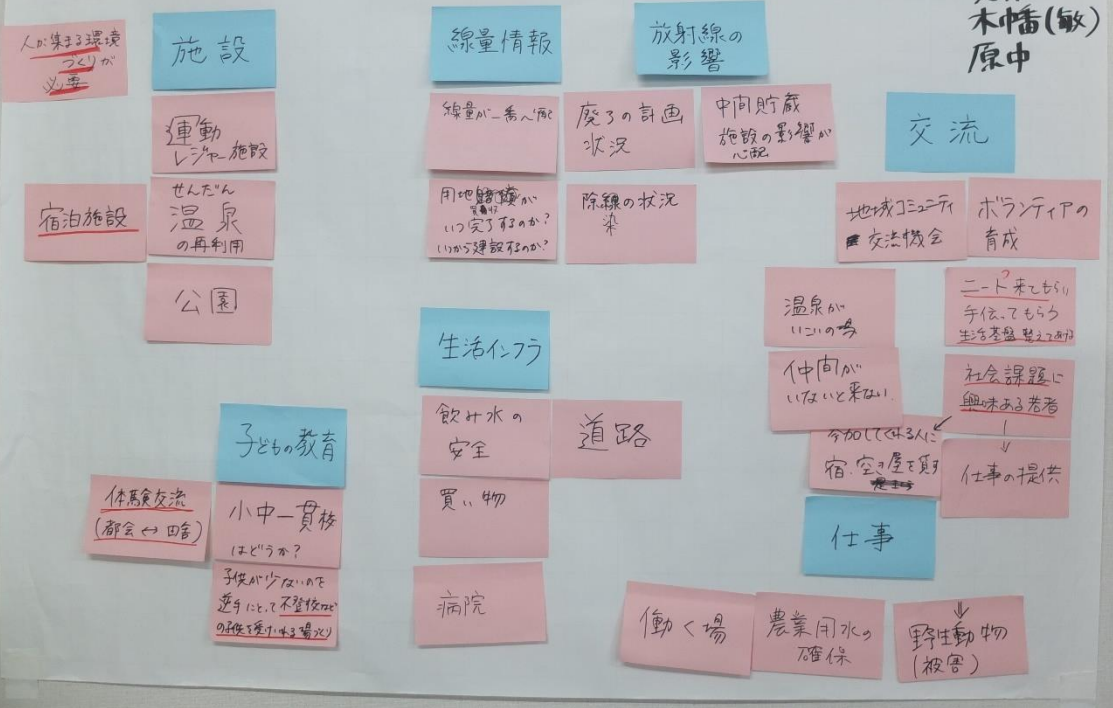 人が集まる環境
づくりが
必要
施設
運動
レジャー施設
宿泊施設
せんだん
温泉
の再利用
公園
線量情報
線量が一番心配
用地
いつ完了するのか?
いつから建設するのか?
放射線の
影響
廃棄の計画
状況
中間貯蔵
施設の影響が
心配
除線の状況
染
木幡(敏)
原中
交流
地域コミュニティ
交流機会
ボランティアの
育成
温泉が
いこいの場
ニート?来てもらい
手伝ってもらう
生活基盤整えてあげる
仲間が
いないと来ない
社会課題に
興味ある若者
↓
仕事の提供
参加してくれる人に
宿、空き屋を貸す
生活インフラ
飲み水の
安全
道路
買い物
病院
子どもの教育
体験交流
(都会↔田舎)
小中一貫校
はどうか?
子供が少ないので
逆手にとって不登校など
の子供を受け入れる場づくり
仕事
働く場
農業用水の
確保
⇓
野生動物
(被害)